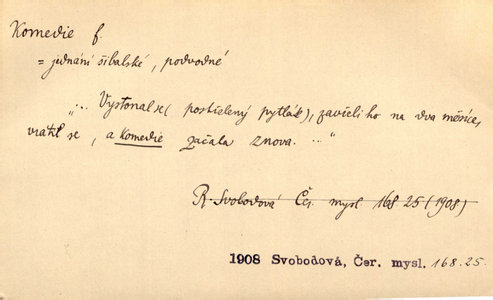 Komedie f.
= jednání šibalské, podvodné
„... Vystonal se (postřelený pytlák), zavřeli ho na dva měsíce,
vrátil se, a komedie začala znova. ..."
R. Svobodová Čer. mysl. 168 25 (1908)
1908 Svobodová, Čer. mysl. 168.25.